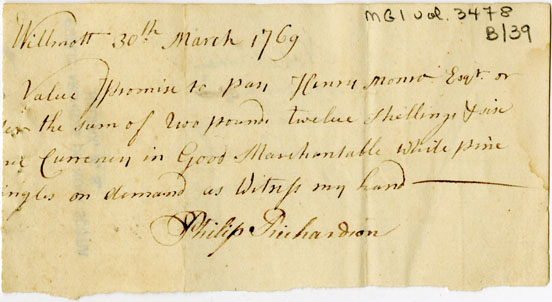 MG1 vol. 3478
B/39
Willmott 30th March 1769
Value I promise to pay Henry Monro Esqr. or
the sum of Two pounds twelve Shellings & six
Currency in Good Marchantable White pine
ingles on demand as Witness my hand
Philip Richardson